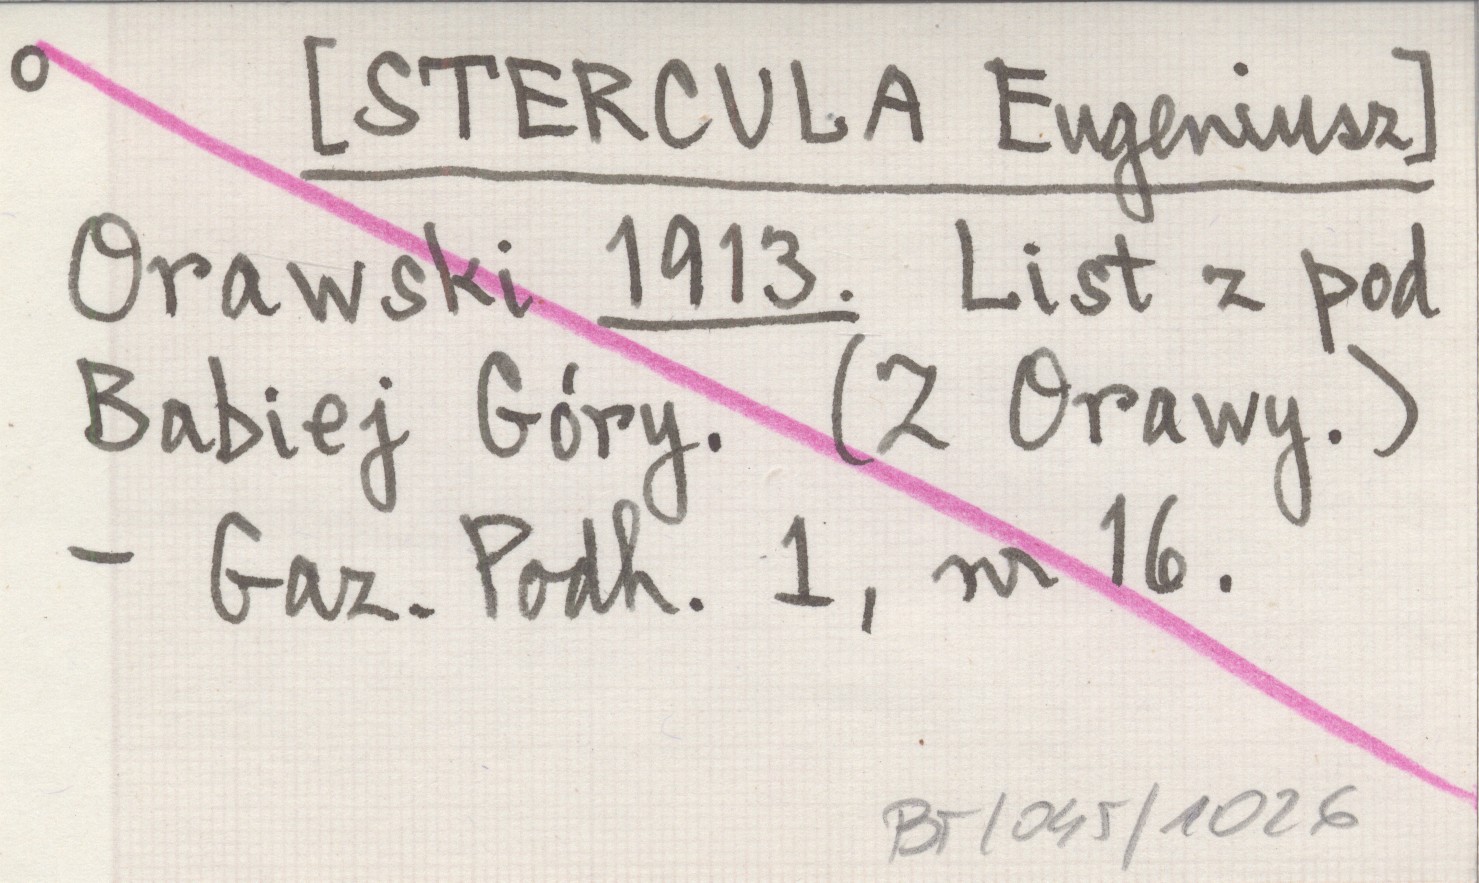 o [STERCULA Eugeniusz]
Orawski 1913. List z pod
Babiej Góry. (Z Orawy.)
- Gaz. Podh. 1, nr 16.
BT/045/1026